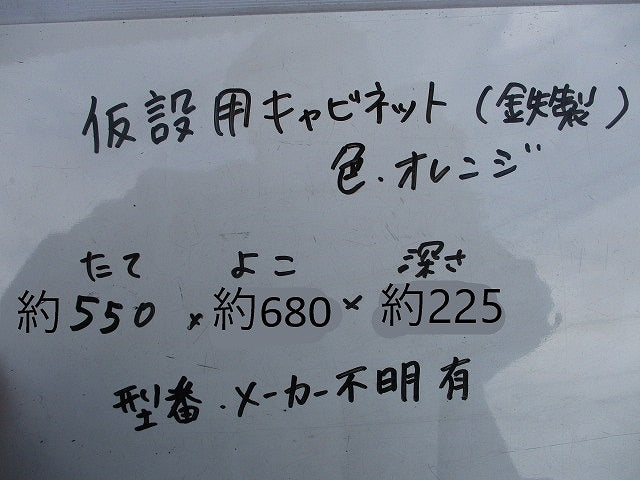 仮設用キャビネット(鉄製)
色.オレンジ
たて よこ 深さ
約550 × 約680 × 約225
型番.メーカー不明有